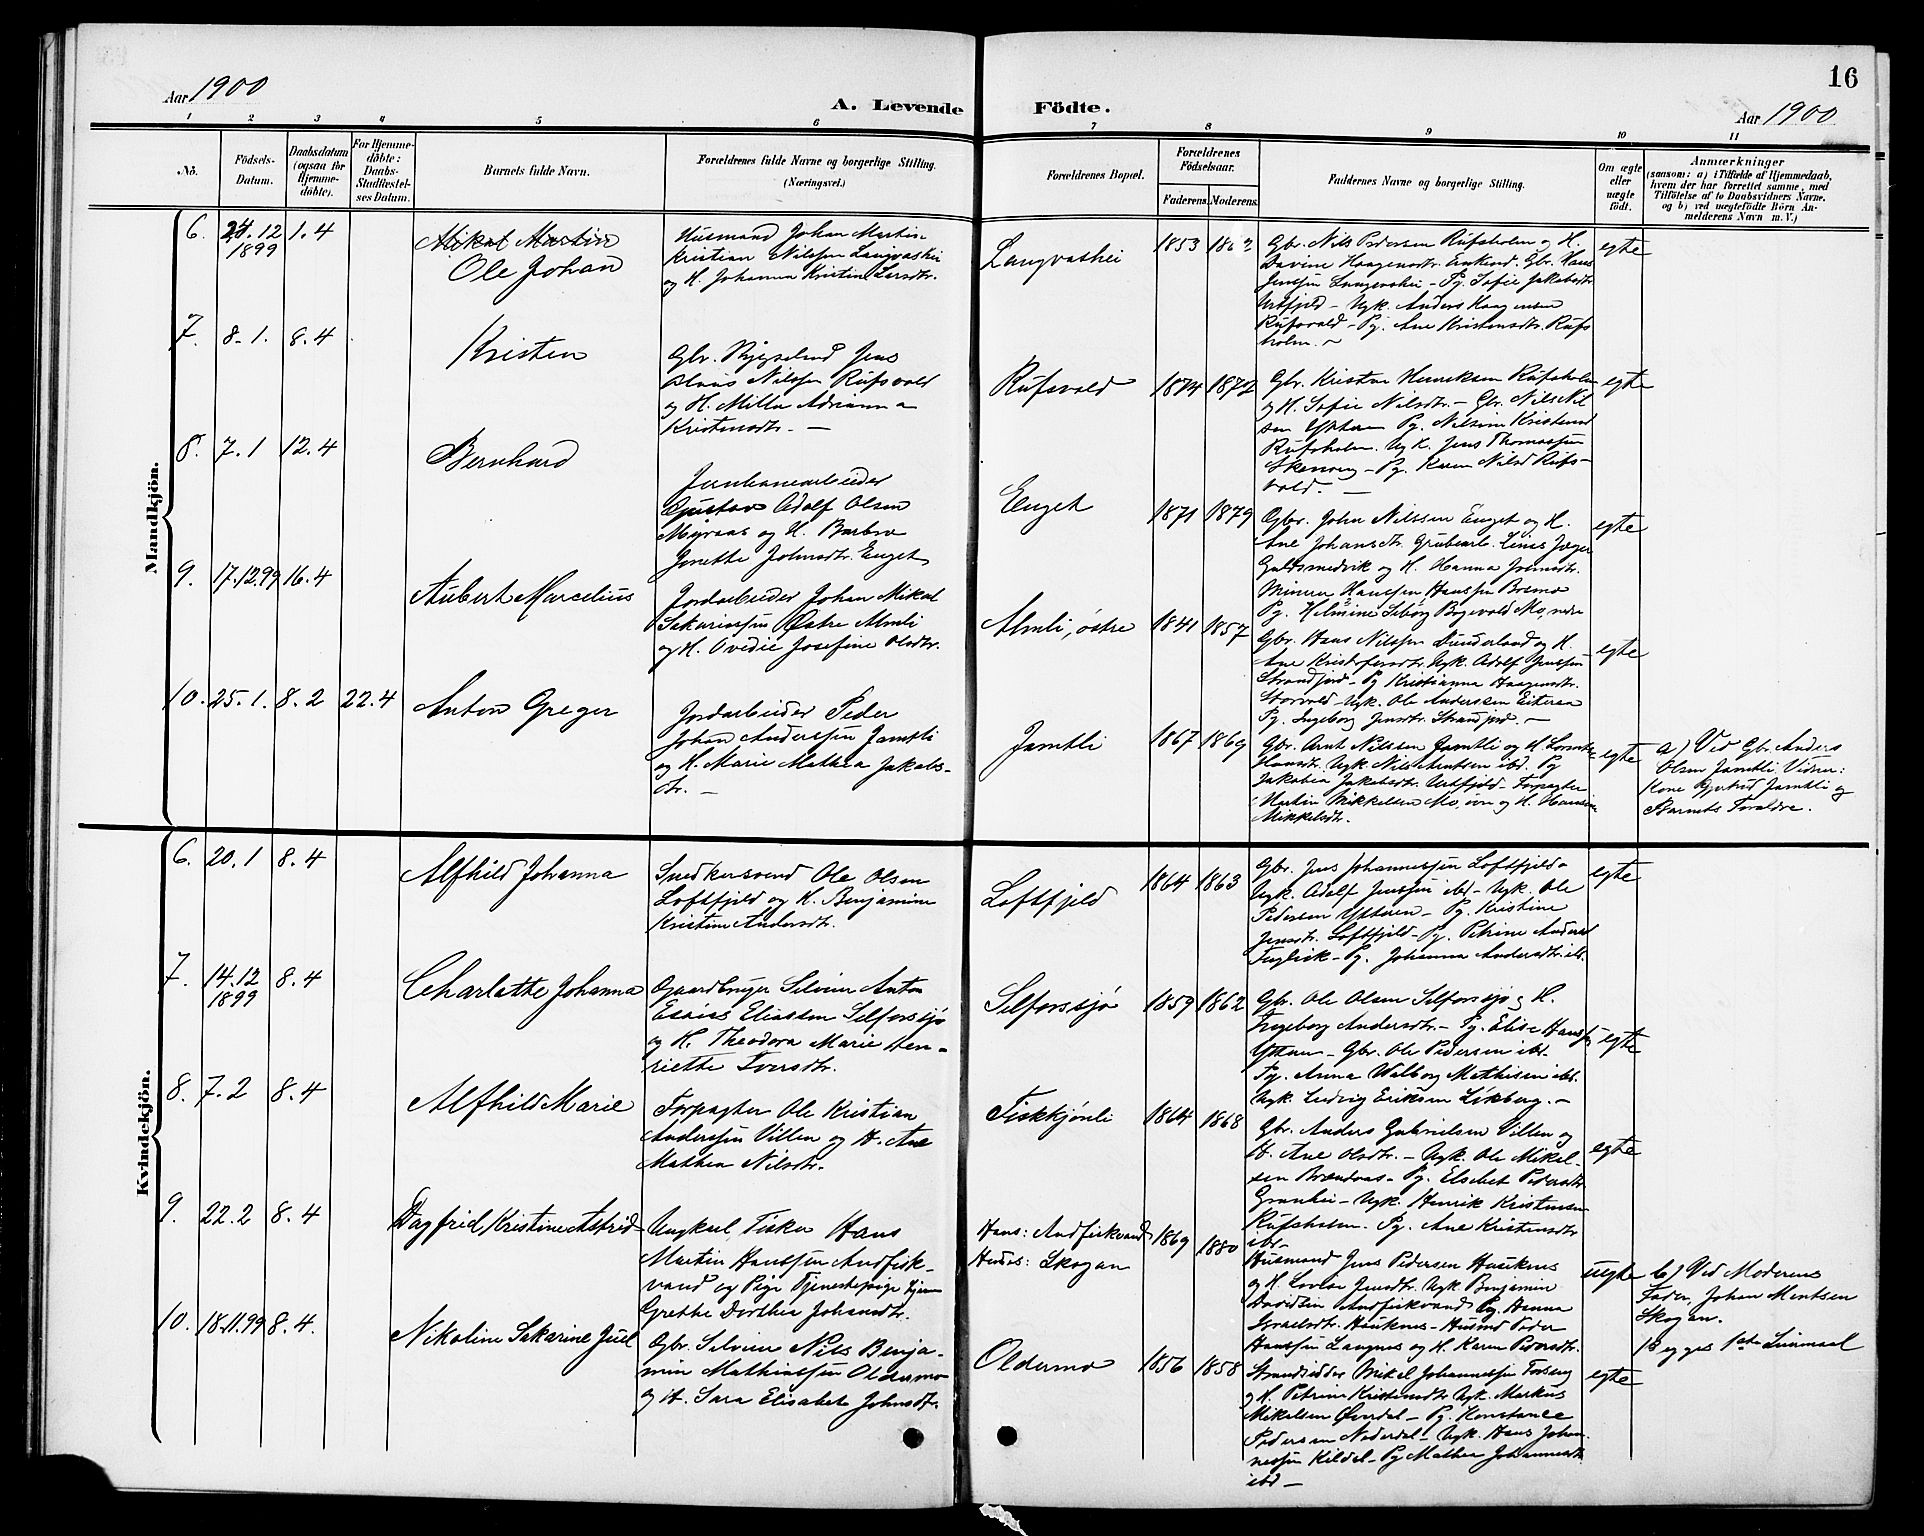 Aar 1900
A. Levende Födte.
16
Aar 1900
1 2 3 4 5 6 7 8 9 10 11
No.
Födsels-
Datum.
Daabsdatum
(ogsaa for
Hjemme-
döbte).
For Hjemme-
döbte:
Daabs-
Stadfæstel-
ses Datum.
Barnets fulde Navn.
Forældrenes fulde Navne og borgerlige Stilling.
(Næringsvei.)
Forældrenes Bopæl.
Forældrenes
Födselsaar.
Faderens. Moderens.
Faddernes Navne og borgerlige Stilling.
Om ægte
eller
uægte
födt.
Anmærkninger
(saasom: a) i Tilfælde af Hjemmedaab,
hvem der har forrettet samme, med
Tilföielse af to Daabsvidners Navne,
og b) ved uægtefödte Börn An-
melderens Navn m. V.)
Mandkjön.
6. 24.12
1899
1.4
Mikal Martin
Ole Johan
Husmand Johan Martin
Kristian Nilssen Langvashei
og H. Johanna Kristine Larsdtr.
Langvashei
1853
Gbr. Nils Pedersen Rufsholm og H.
Davine Haagensdtr. Gbr. Hans
Jenssen Langvashei - Pg. Sofie Jakobsdtr
Urtfjeld - Ugk. Anders Haagensen
Rufsvold - Pg. Ane Kristensdtr. Rufs
holm. -
egte
7. 8.1. 8.4
Kristen
Gbr. Jens
Nilssen Rufsvold
og H. Milla Adrianna
Kristensdtr. -
Rufsvold
1874 1872
Gbr. Kristen Henriksen Rufsholm
og H. Sofie Nilsdtr. - Gbr. Nils Nil
sen Ytteren Pg. Nilsine Kristensd
Rufsholm. Ugk. Jens Thomassen
Pg. Karen Nilsd Rufs-
vold. -
egte
8. 7.1 12.4
Bernhard
Jernbanearbeider
Gustav Adolf Olsen
Myraas og H. Barbro
Jonette Johnsdtr. Enget
Enget
1871 1879
Gbr. John Nilssen Enget og H.
Ane Johansdtr. Grubearb. Linus Jæger
Guldsmedvik og H. Hanna Johnsdtr.
Minerer Hans Hanssen Bremo
Pg. Helmine Seborg Bogevold Mo, nedre
egte
9. 17.12.99 16.4
Aubert Marcelius
Jordarbeider Johan Mikal
Sakariassen Østre Almli
og H. Ovedie Josefine Olsdtr.
Almli, østre
1841 1857
Gbr. Hans Nilssen Dunderland og H.
Ane Kristofersdtr. Ugk. Adolf Jenssen
Strandjord - Pg. Kristianna Haagensdtr.
Storvold - Ugk. Ole Anderssen Eiteraa
Pg. Ingeborg Jensdtr. Strandjord. -
egte
10. 25.1. 8.2 22.4
Anton Greger
Jordarbeider Peder
Johan Anderssen Jamtli
og H. Marie Mathea Jakobs-
dtr. -
Jamtli
1867 1869
Gbr. Arnt Nilssen Jamtli og H.
Hansdtr. Ugk. Nils ibd. Pg
Jakobia Jakobsdtr. Urtfjeld - Forpagter
Martin Mikkelsen Mo, øvre og H.
Mikkelsdtr.
egte
a) Ved Gbr. Anders
Olsen Jamtli. Vidner:
Kone Gjertrud Jamtli og
Barnets Forældre.
Kvindekjön.
6. 20.1 8.4
Alfhild Johanna
Snedkersvend Ole Olsen
Loftfjeld og H. Benjamine
Kristine Andersdtr.
Loftfjeld
1864 1863
Gbr. Jens Johannessen Loftfjeld -
Ugk. Adolf Jenssen ibd - Ugk. Ole
Pedersen Ytteren - Pg. Kristine
Jensdtr. Loftfjeld - Pg. Petrine Andersd
Fuglvik - Pg. Johanna Andersdtr. ib.
egte
7. 14.12
1899
8.4
Charlotte Johanna
Gaardbruger Selveier Anton
Esaias Eliassen Selforssjø
og H. Theodora Marie Hen-
riette Iversdtr.
Selforssjø
1859 1862
Gbr. Ole Olsen Selforssjø og H.
Ingeborg Andersdtr. - Pg. Elise Hanss
Ytteren - Gbr. Ole Pedersen ibd.
Pg. Anna Walborg Mathisen ibd.
Ugk. Ludvig Eriksen Likberg. -
egte
8. 7.2 8.4
Alfhild Marie
Forpagter Ole Kristian
Anderssen Villen og H. Ane
Mathea Nilsdtr.
Fiskkjønli
1864 1868
Gbr. Anders Gabrielsen Villen og
H. Ane Olsdtr. - Ugk. Ole Mikal-
sen Brændvas - Pg. Elsebet Pedersdtr
Granhei - Ugk. Henrik Kristensen
Rufsholm. Pg. Ane Kristensdtr
ibd.
egte
9. 22.2 8.4
Dagfrid Kristine Astrid
Ungkarl, Fisker Hans
Martin Hanssen Andfisk-
vand og Pige Tjenestepige
Grethe Dorthea Johansdtr.
Hans: Andfiskvand
Hendes: Skogan
1869 1880
Husmand Jens Pedersen Hauknes
og H. Lovise Jensdtr. Ugk. Benjamin
Davidsen Andfiskvand Pg. Hanna
Israelsdtr. Hauknes - Husmd Peder
Hanssen Langnes og H. Karen Pedersdtr.
uegte
b) Ved Moderens
Fader, Johan Mentsen
Skogan.
Begges 1ste Leiermaal
10. 18.11.99 8.4.
Nikoline Sakarine Juel
Gbr. Selveier Nils Benja-
min Mathiassen Oldermo
og H. Sara Elisabet Johnsdtr.
Oldermo
1856 1858
Strandsidder Mikal Johannessen Forsberg
og H. Petrine Kristensdtr Ugk. Markus
Mikalsen Øverdal - Pg. Konstance
Pedersen Nederdal - Ugk. Hans Johan-
nessen Kildal - Pg Mathea Johannesdtr
ibd -
egte